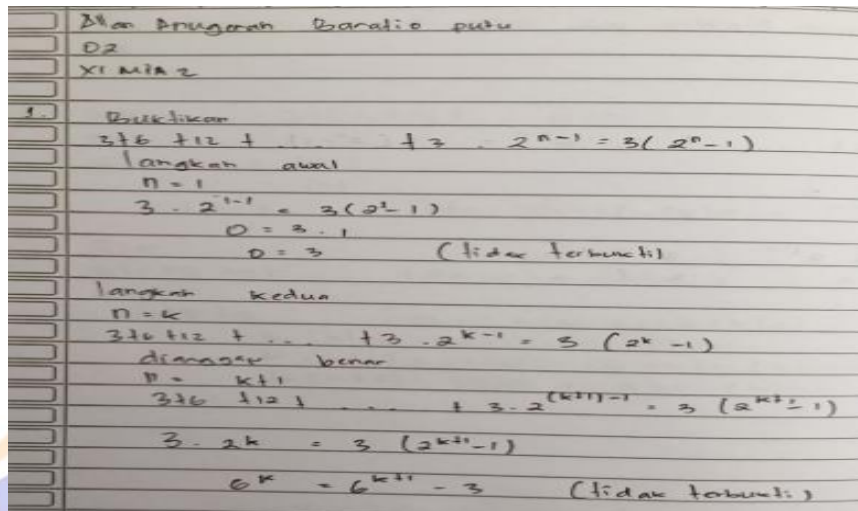 Anugerah Baratio putu
02
XI MIA 2
1. Buktikan
3+6 +12 + .... + 3 . 2^{n-1} = 3( 2^n - 1)
langkah awal
n = 1
3 . 2^{1-1} = 3(2^1 - 1)
0 = 3 . 1
0 = 3 (tidak terbukti)
langkah kedua
n = k
3+6 +12 + ... + 3 . 2^{k-1} = 3 (2^k - 1)
dianggap benar
n = k+1
3+6 +12 + .... + 3 . 2^{(k+1)-1} = 3 (2^{k+1} - 1)
3 . 2k = 3 (2^{k+1} - 1)
6^k = 6^{k+1} - 3 (tidak terbukti)